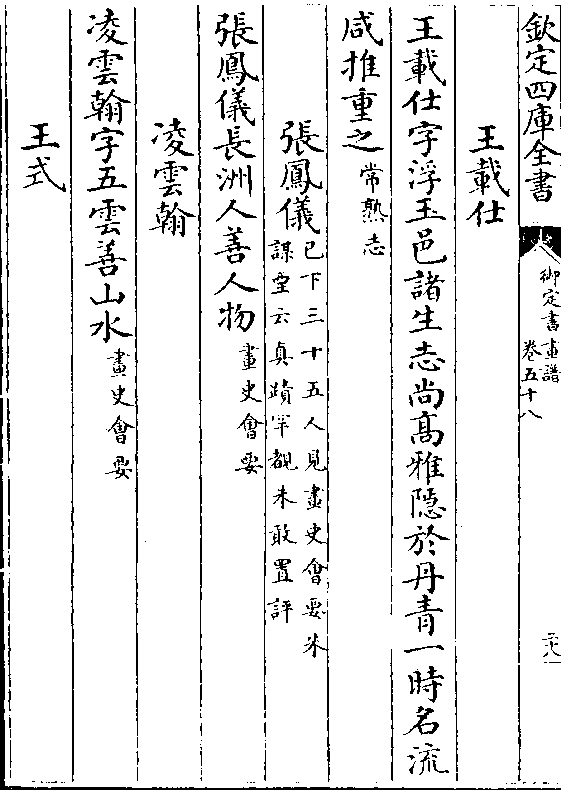 欽定四庫全書
御定書畫譜
卷五十八
王載仕
王載仕字浮王邑諸生志尚高雅隱於丹青一時名流
咸推重之常熟志
張鳳儀已下三十五人見畫史會要朱
謀垔云真蹟罕覩未敢置評
張鳳儀長洲人善人物畫史會要
凌雲翰
凌雲翰字五雲善山水畫史會要
王式